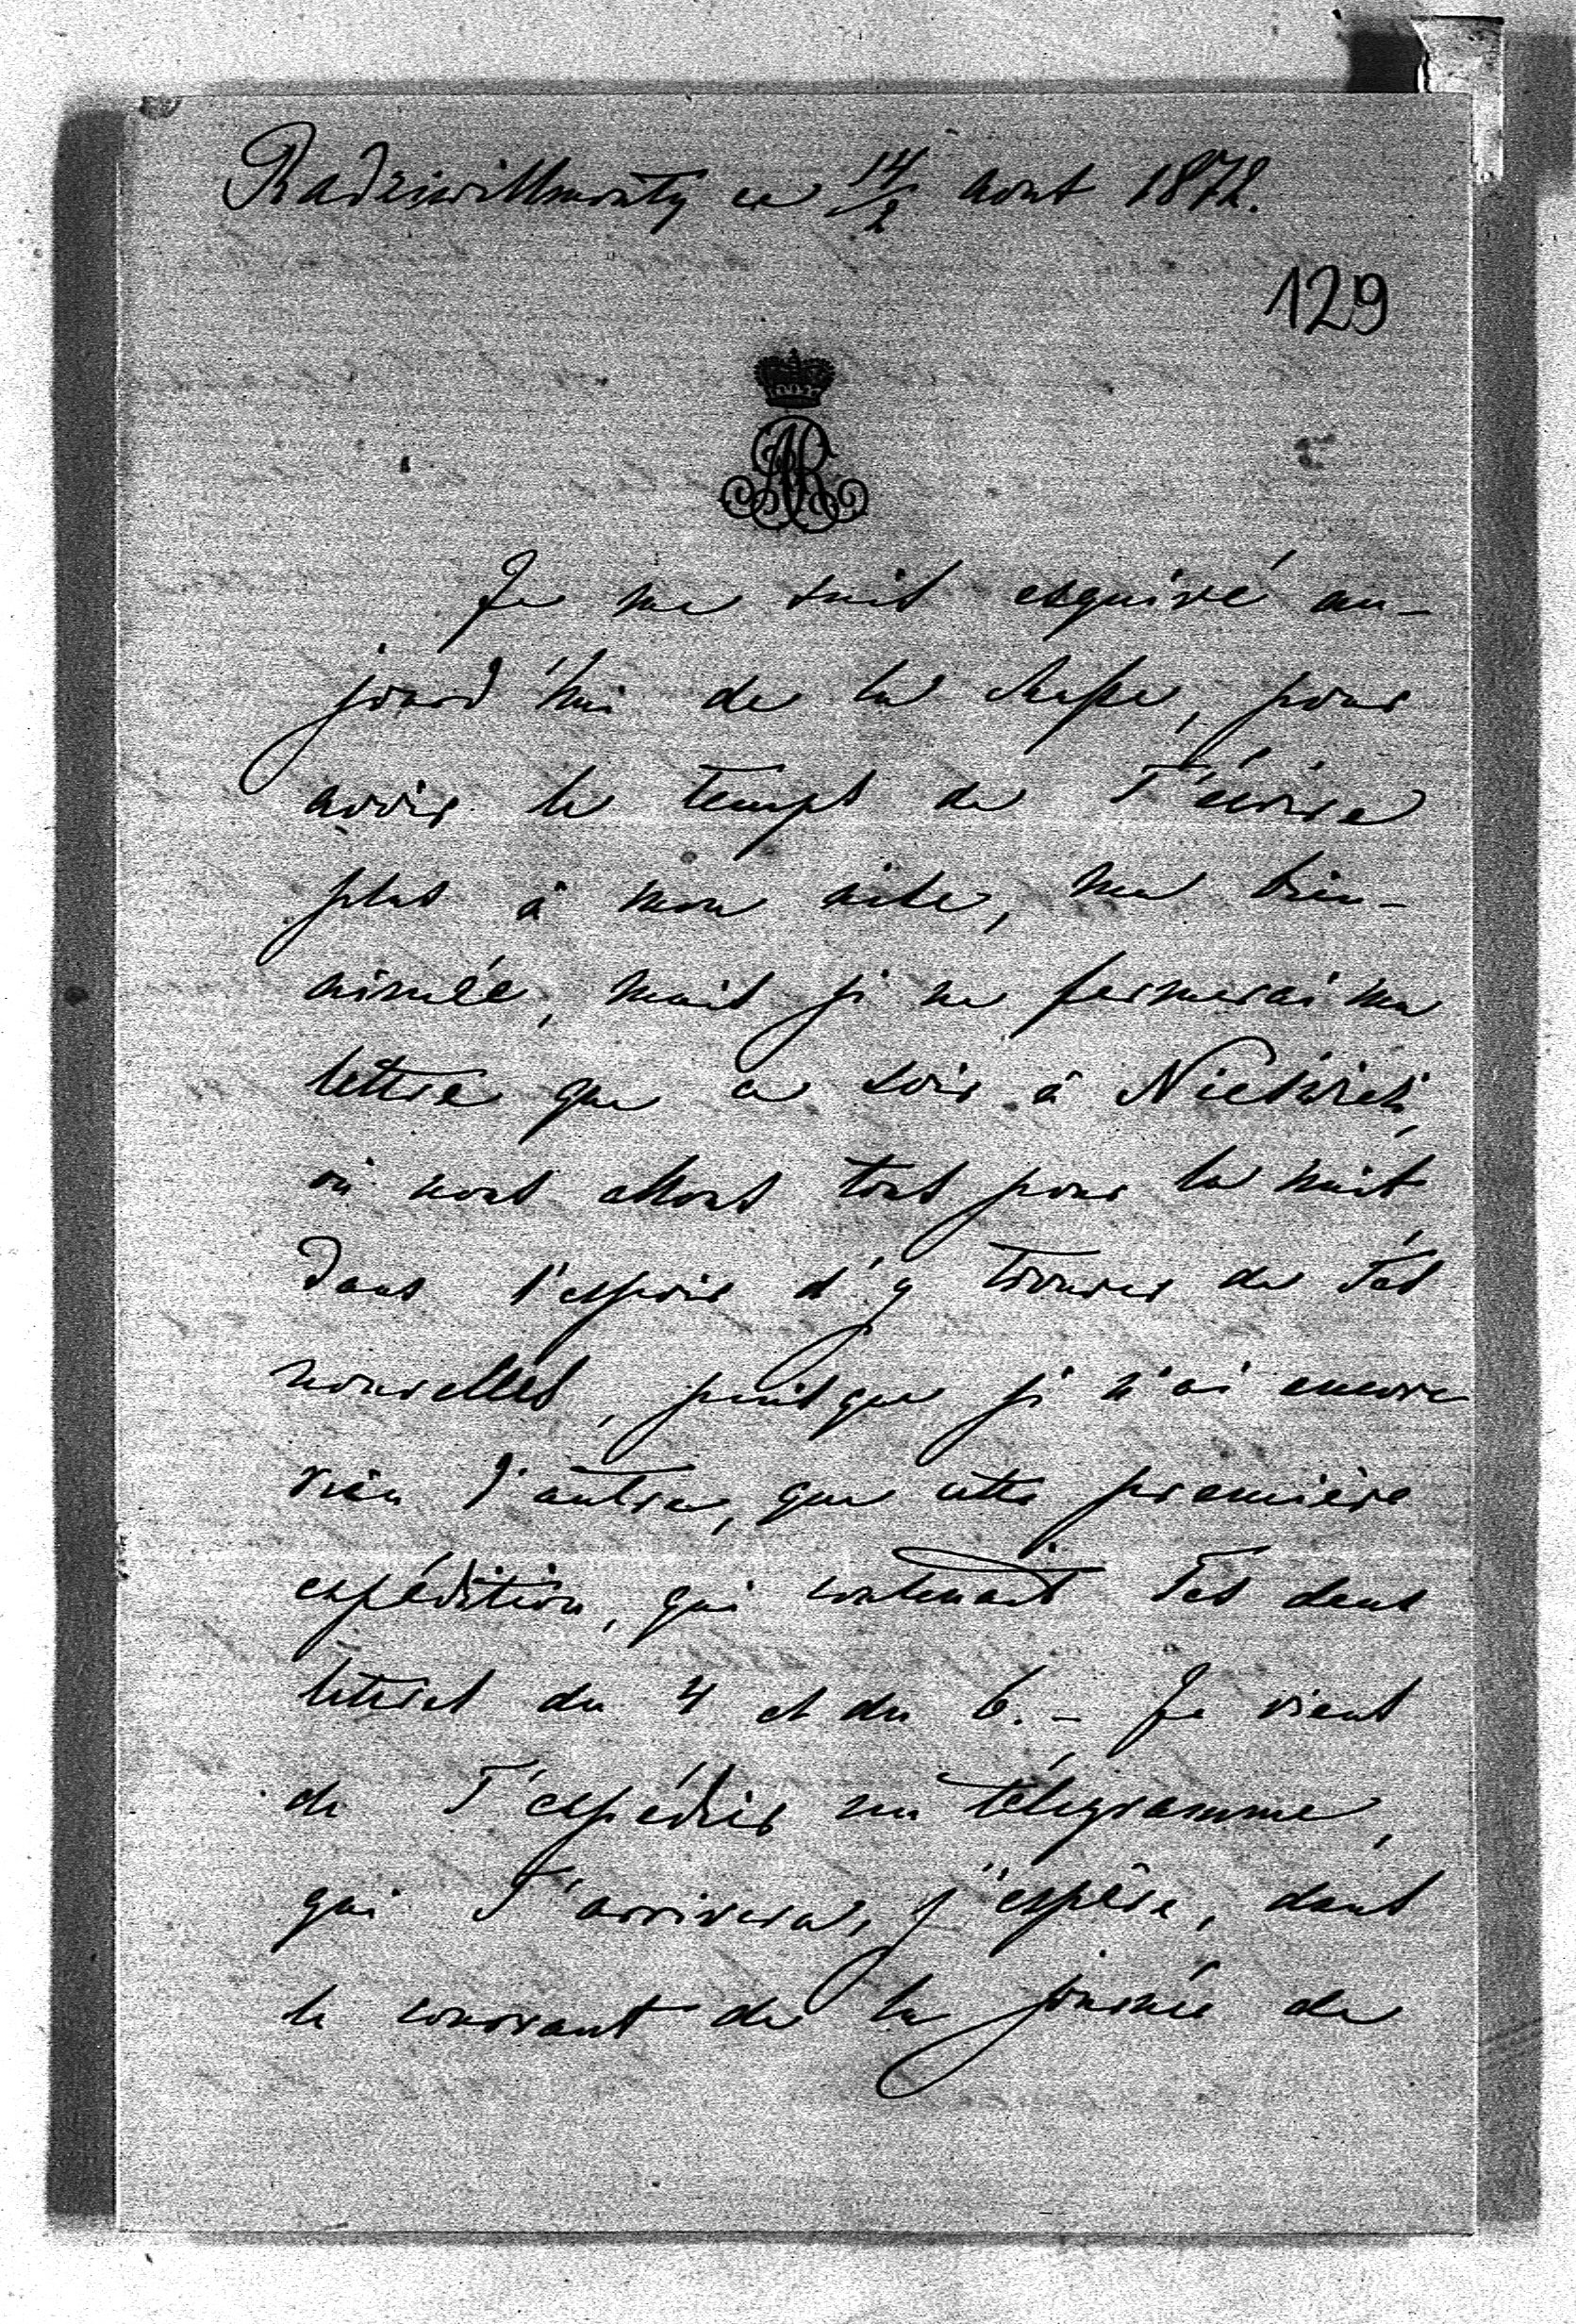 Radziwillmonty ce 14/2 aout 1872.
129
AR
Je me suis esquivé au-
jourd'hui de la chasse, pour
avoir le temps de T'écrire
plus à mon aise, ma bien-
aimée, mais je ne fermerai ma
lettre que ce soir à Nieswiesz,
où nous allons tous pour la nuit,
dans l'espoir d'y trouver de Tes
nouvelles, puisque je n'ai encore
rien d'autre, que cette première
expédition, qui contenait Tes deux
lettres du 4 et du 6. – Je viens
de T'expédier un télégramme,
qui T'arrivera, j'espère, dans
le courant de la journée de